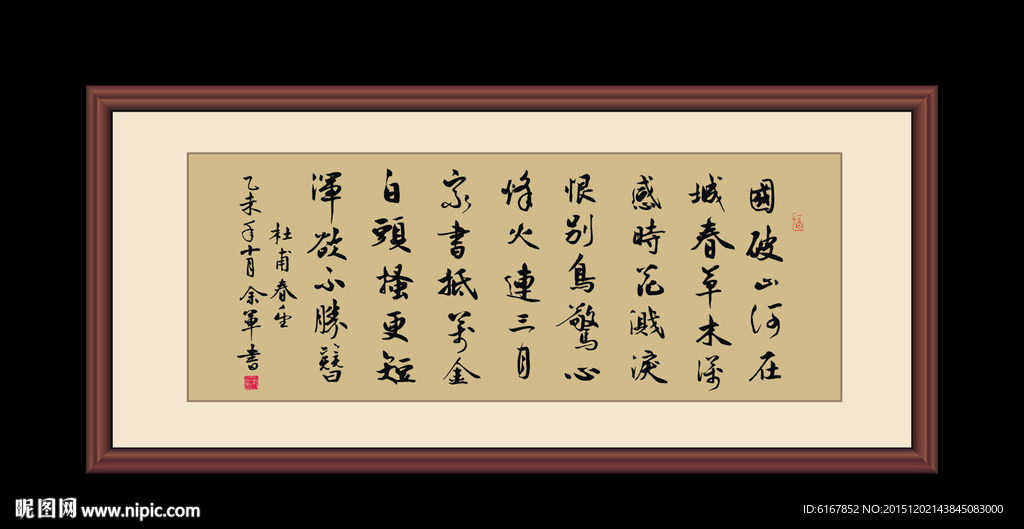 國破山河在
城春草木深
感時花濺淚
恨別鳥驚心
烽火連三月
家書抵萬金
白頭搔更短
渾欲不勝簪
杜甫春望
乙未年十月余軍書
昵图网 www.nipic.com
ID:6167852 NO:20151202143845083000